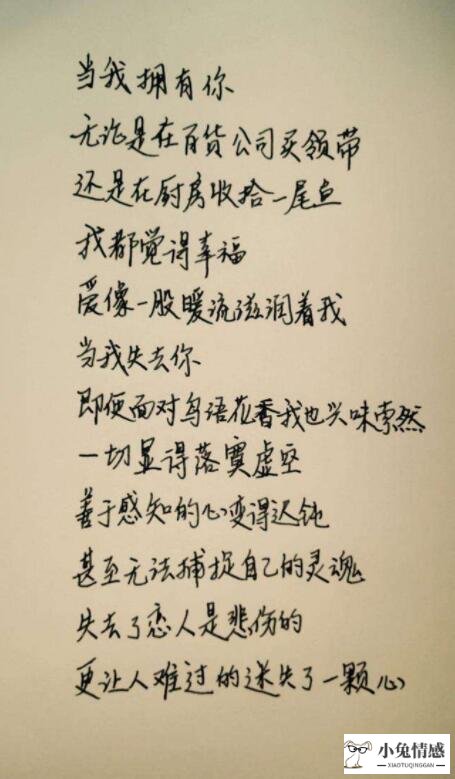 当我拥有你
无论是在百货公司买领带
还是在厨房收拾一尾鱼
我都觉得幸福
爱像一股暖流滋润着我
当我失去你
即便面对鸟语花香我也兴味索然
一切显得落寞虚空
善于感知的心变得迟钝
甚至无法捕捉自己的灵魂
失去了恋人是悲伤的
更让人难过的迷失了一颗心
小兔情感
XIAOTUQINGGAN